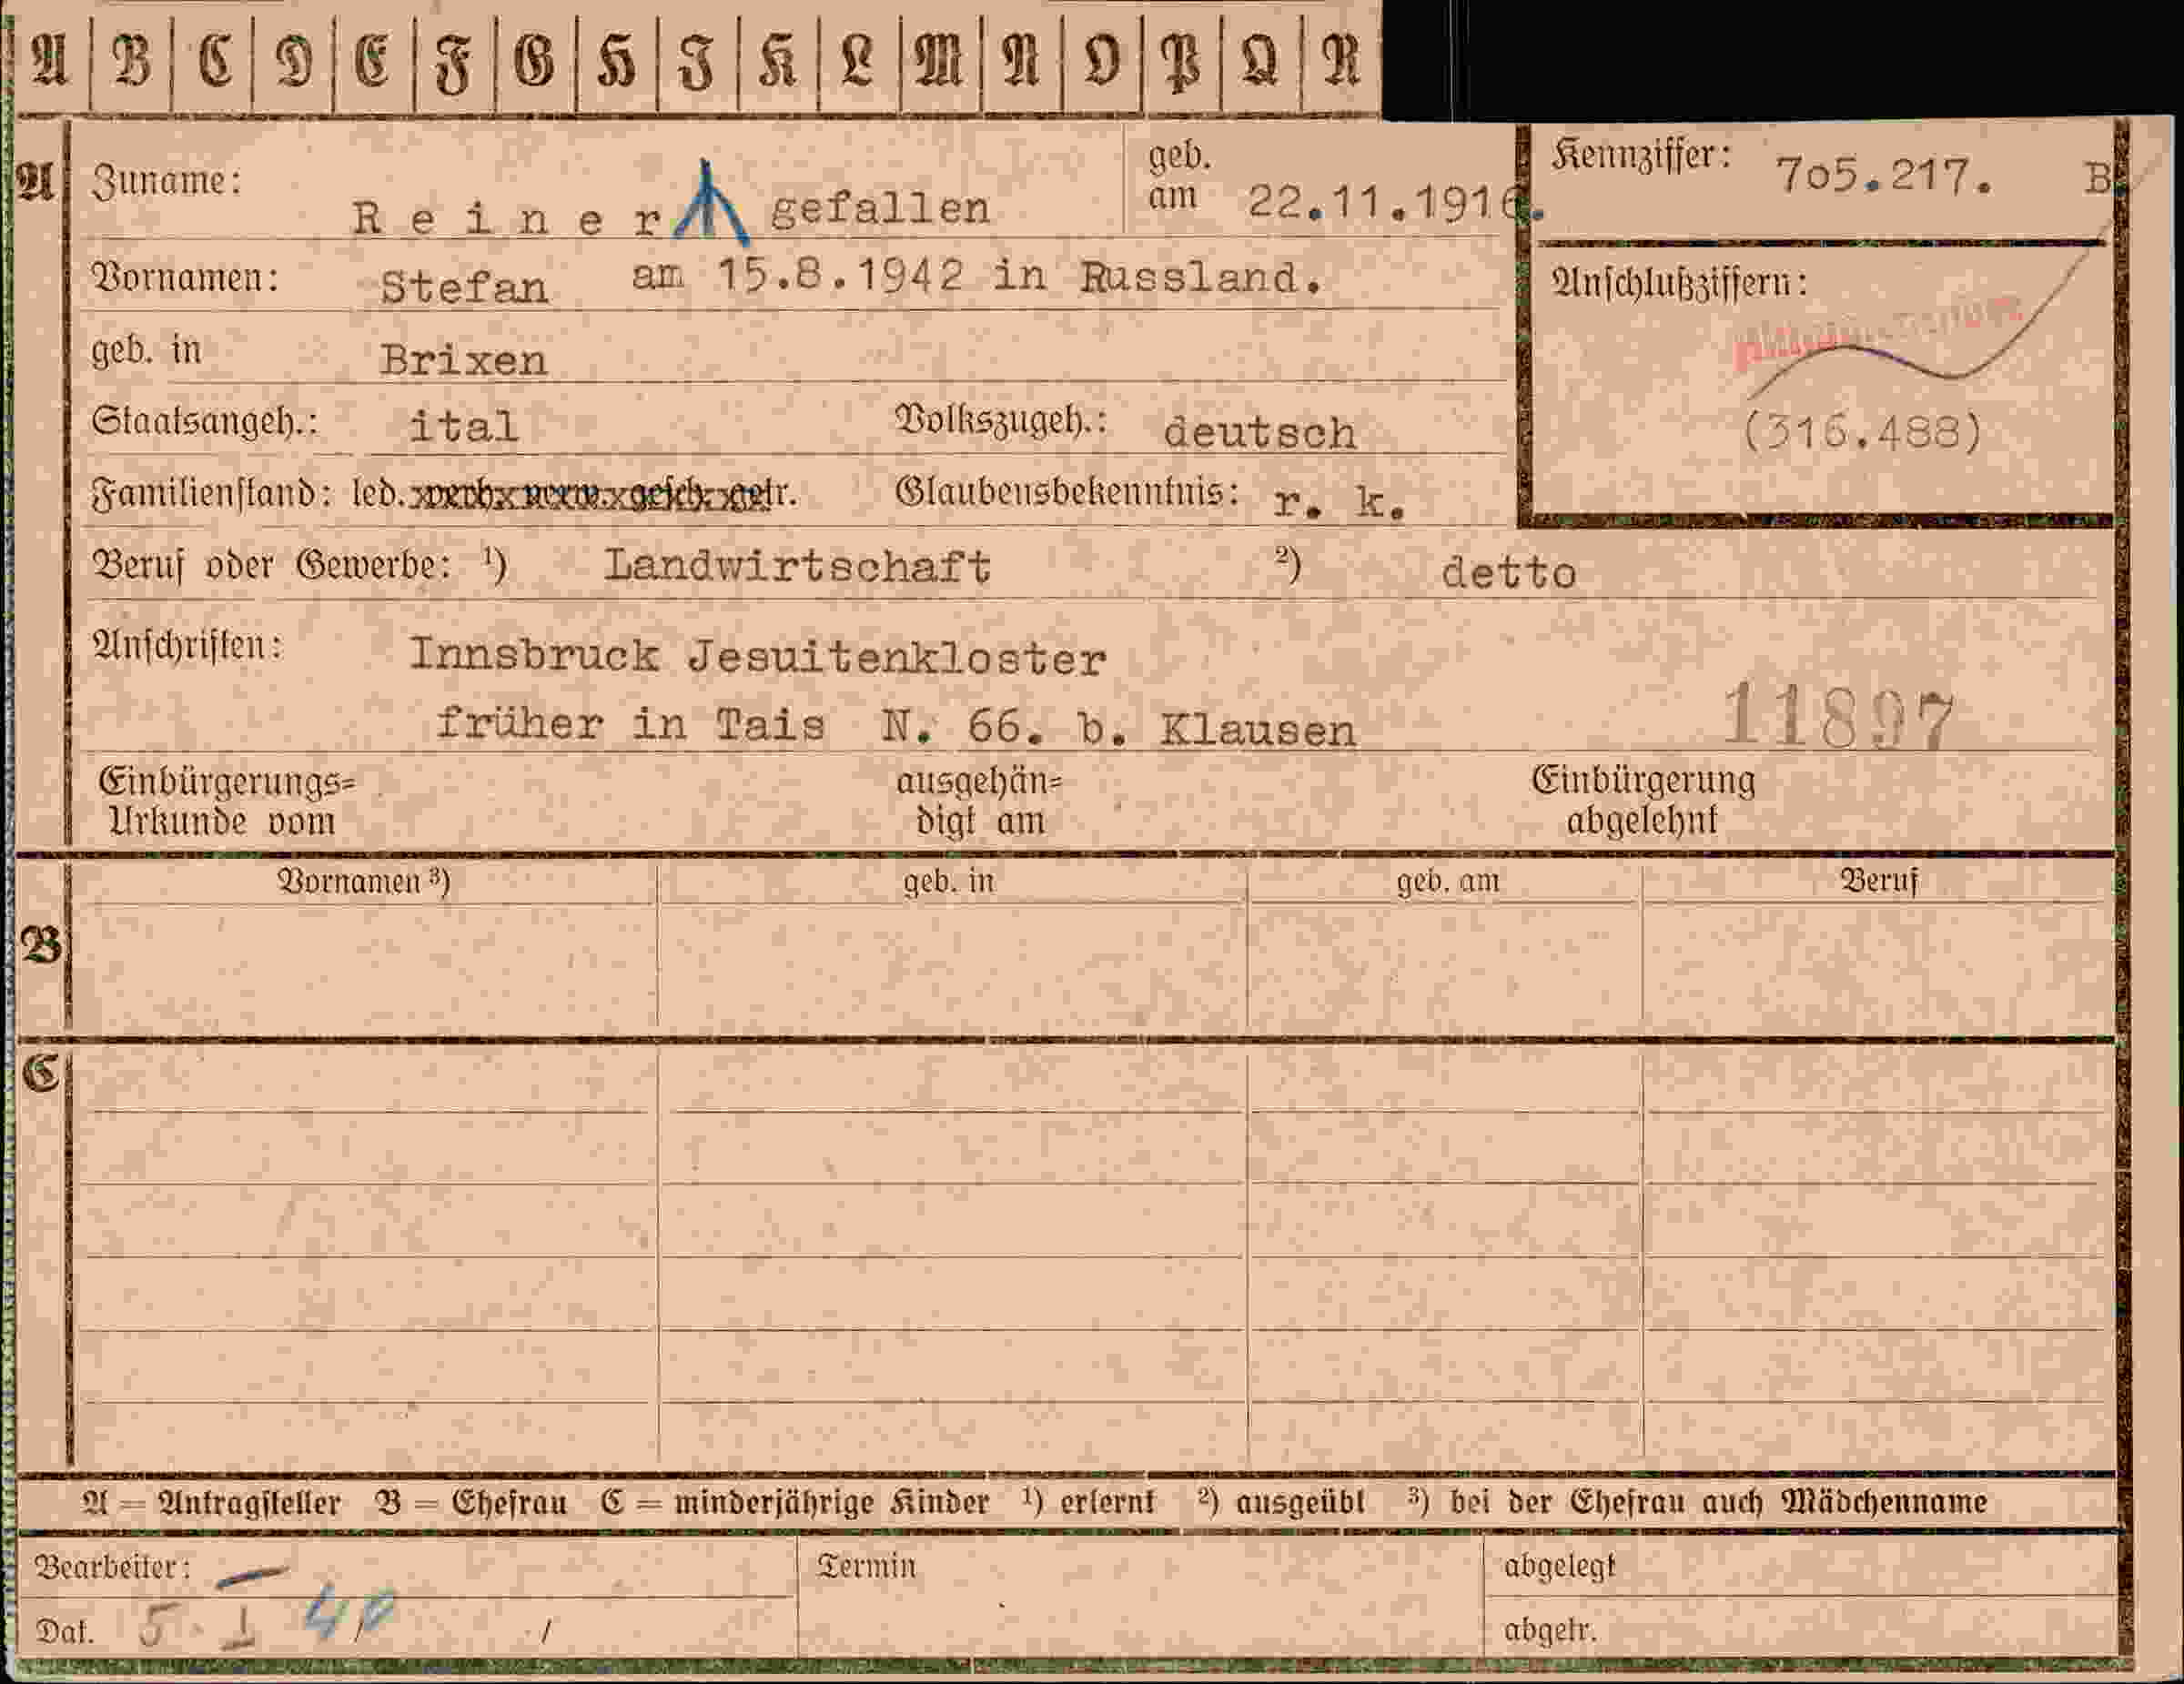 A B C D E F G H I K L M N O P Q R
A Zuname: Reiner gefallen geb. am 22.11.1916. Kennziffer: 705.217. B
Vornamen: Stefan am 15.8.1942 in Russland. Anschlußziffern:
geb. in Brixen
Staatsangeh.: ital Volkszugeh.: deutsch (316.488)
Familienstand: led. verh. verw. gesch. getr. Glaubensbekenntnis: r. k.
Beruf oder Gewerbe: ¹) Landwirtschaft ²) detto
Anschriften: Innsbruck Jesuitenkloster
früher in Tais N. 66. b. Klausen 11897
Einbürgerungs= ausgehän= Einbürgerung
Urkunde vom digt am abgelehnt
Vornamen ³) geb. in geb. am Beruf
B
C
A = Antragsteller B = Ehefrau C = minderjährige Kinder ¹) erlernt ²) ausgeübt ³) bei der Ehefrau auch Mädchenname
Bearbeiter: Termin abgelegt
Dat. 5. 1 40 / / abgetr.